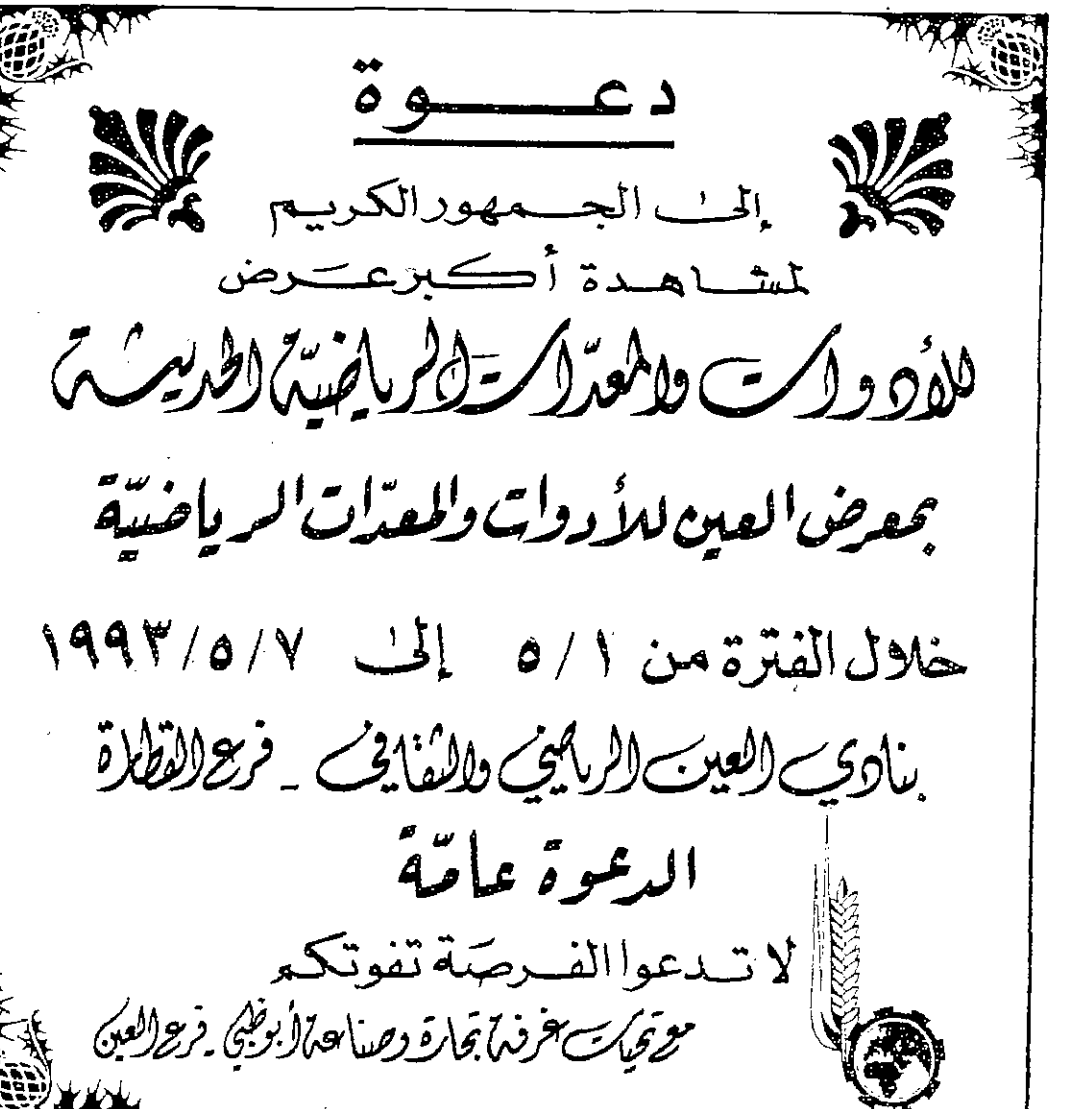 دعـــوة
إلى الجـمهور الكريم
لمشاهدة أكبر عرض
للأدوات والمعدّات الرياضيّة الحديثة
بمعرض العين للأدوات والمعدّات الرياضيّة
خلال الفترة من ٥/١ إلى ١٩٩٣/٥/٧
بنادي العين الرياضي والثقافي - فرع القطارة
الدعوة عامّة
لا تـدعوا الفـرصَة تفوتكم
مع تحيات غرفة تجارة وصناعة أبوظبي - فرع العين